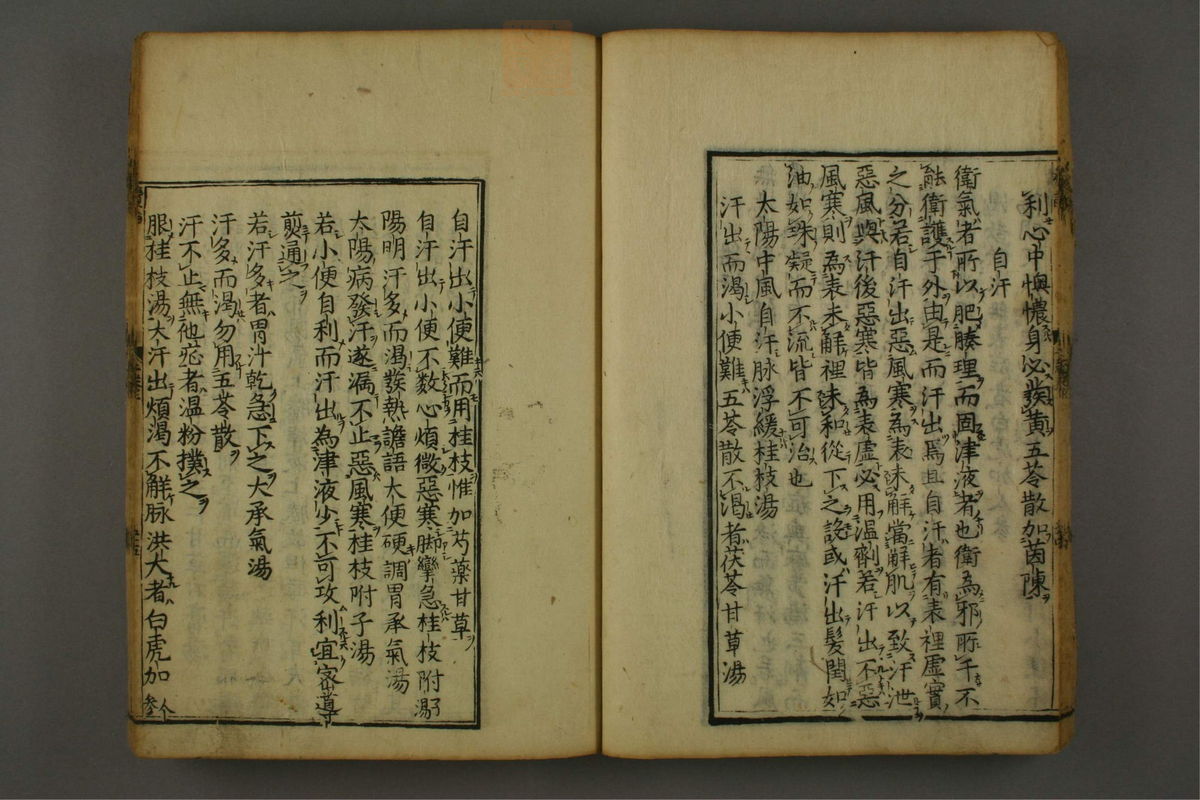 利心中懊憹身必發黄五苓散加茵陳
自汗
衛氣者所以肥腠理而固津液者也衛為邪所干不
能衛護于外由是而汗出焉且自汗者有表裡虚實
之分若自汗出惡風寒為表未解當解肌以致汗泄
惡風與汗後惡寒皆為表虚必用温劑若汗出不惡
風寒則為表未解裡未和從下之設或汗出髪閏如
油如珠凝而不流皆不可治也
太陽中風自汗脉浮緩桂枝湯
汗出而渇小便難五苓散不渇者茯苓甘草湯
自汗出小便難而用桂枝惟加芍藥甘草
自汗出小便不数心煩微惡寒脚攣急桂枝附子湯
陽明汗多而渇發熱譫語大便硬調胃承氣湯
太陽病發汗遂漏不止惡風寒桂枝附子湯
若小便自利而汗出為津液少不可攻利宜密導
煎通之
若汗多者胃汁乾急下之大承氣湯
汗多而渇勿用五苓散
汗不止無他症者温粉撲之
服桂枝湯大汗出煩渇不解脉洪大者白虎加人参